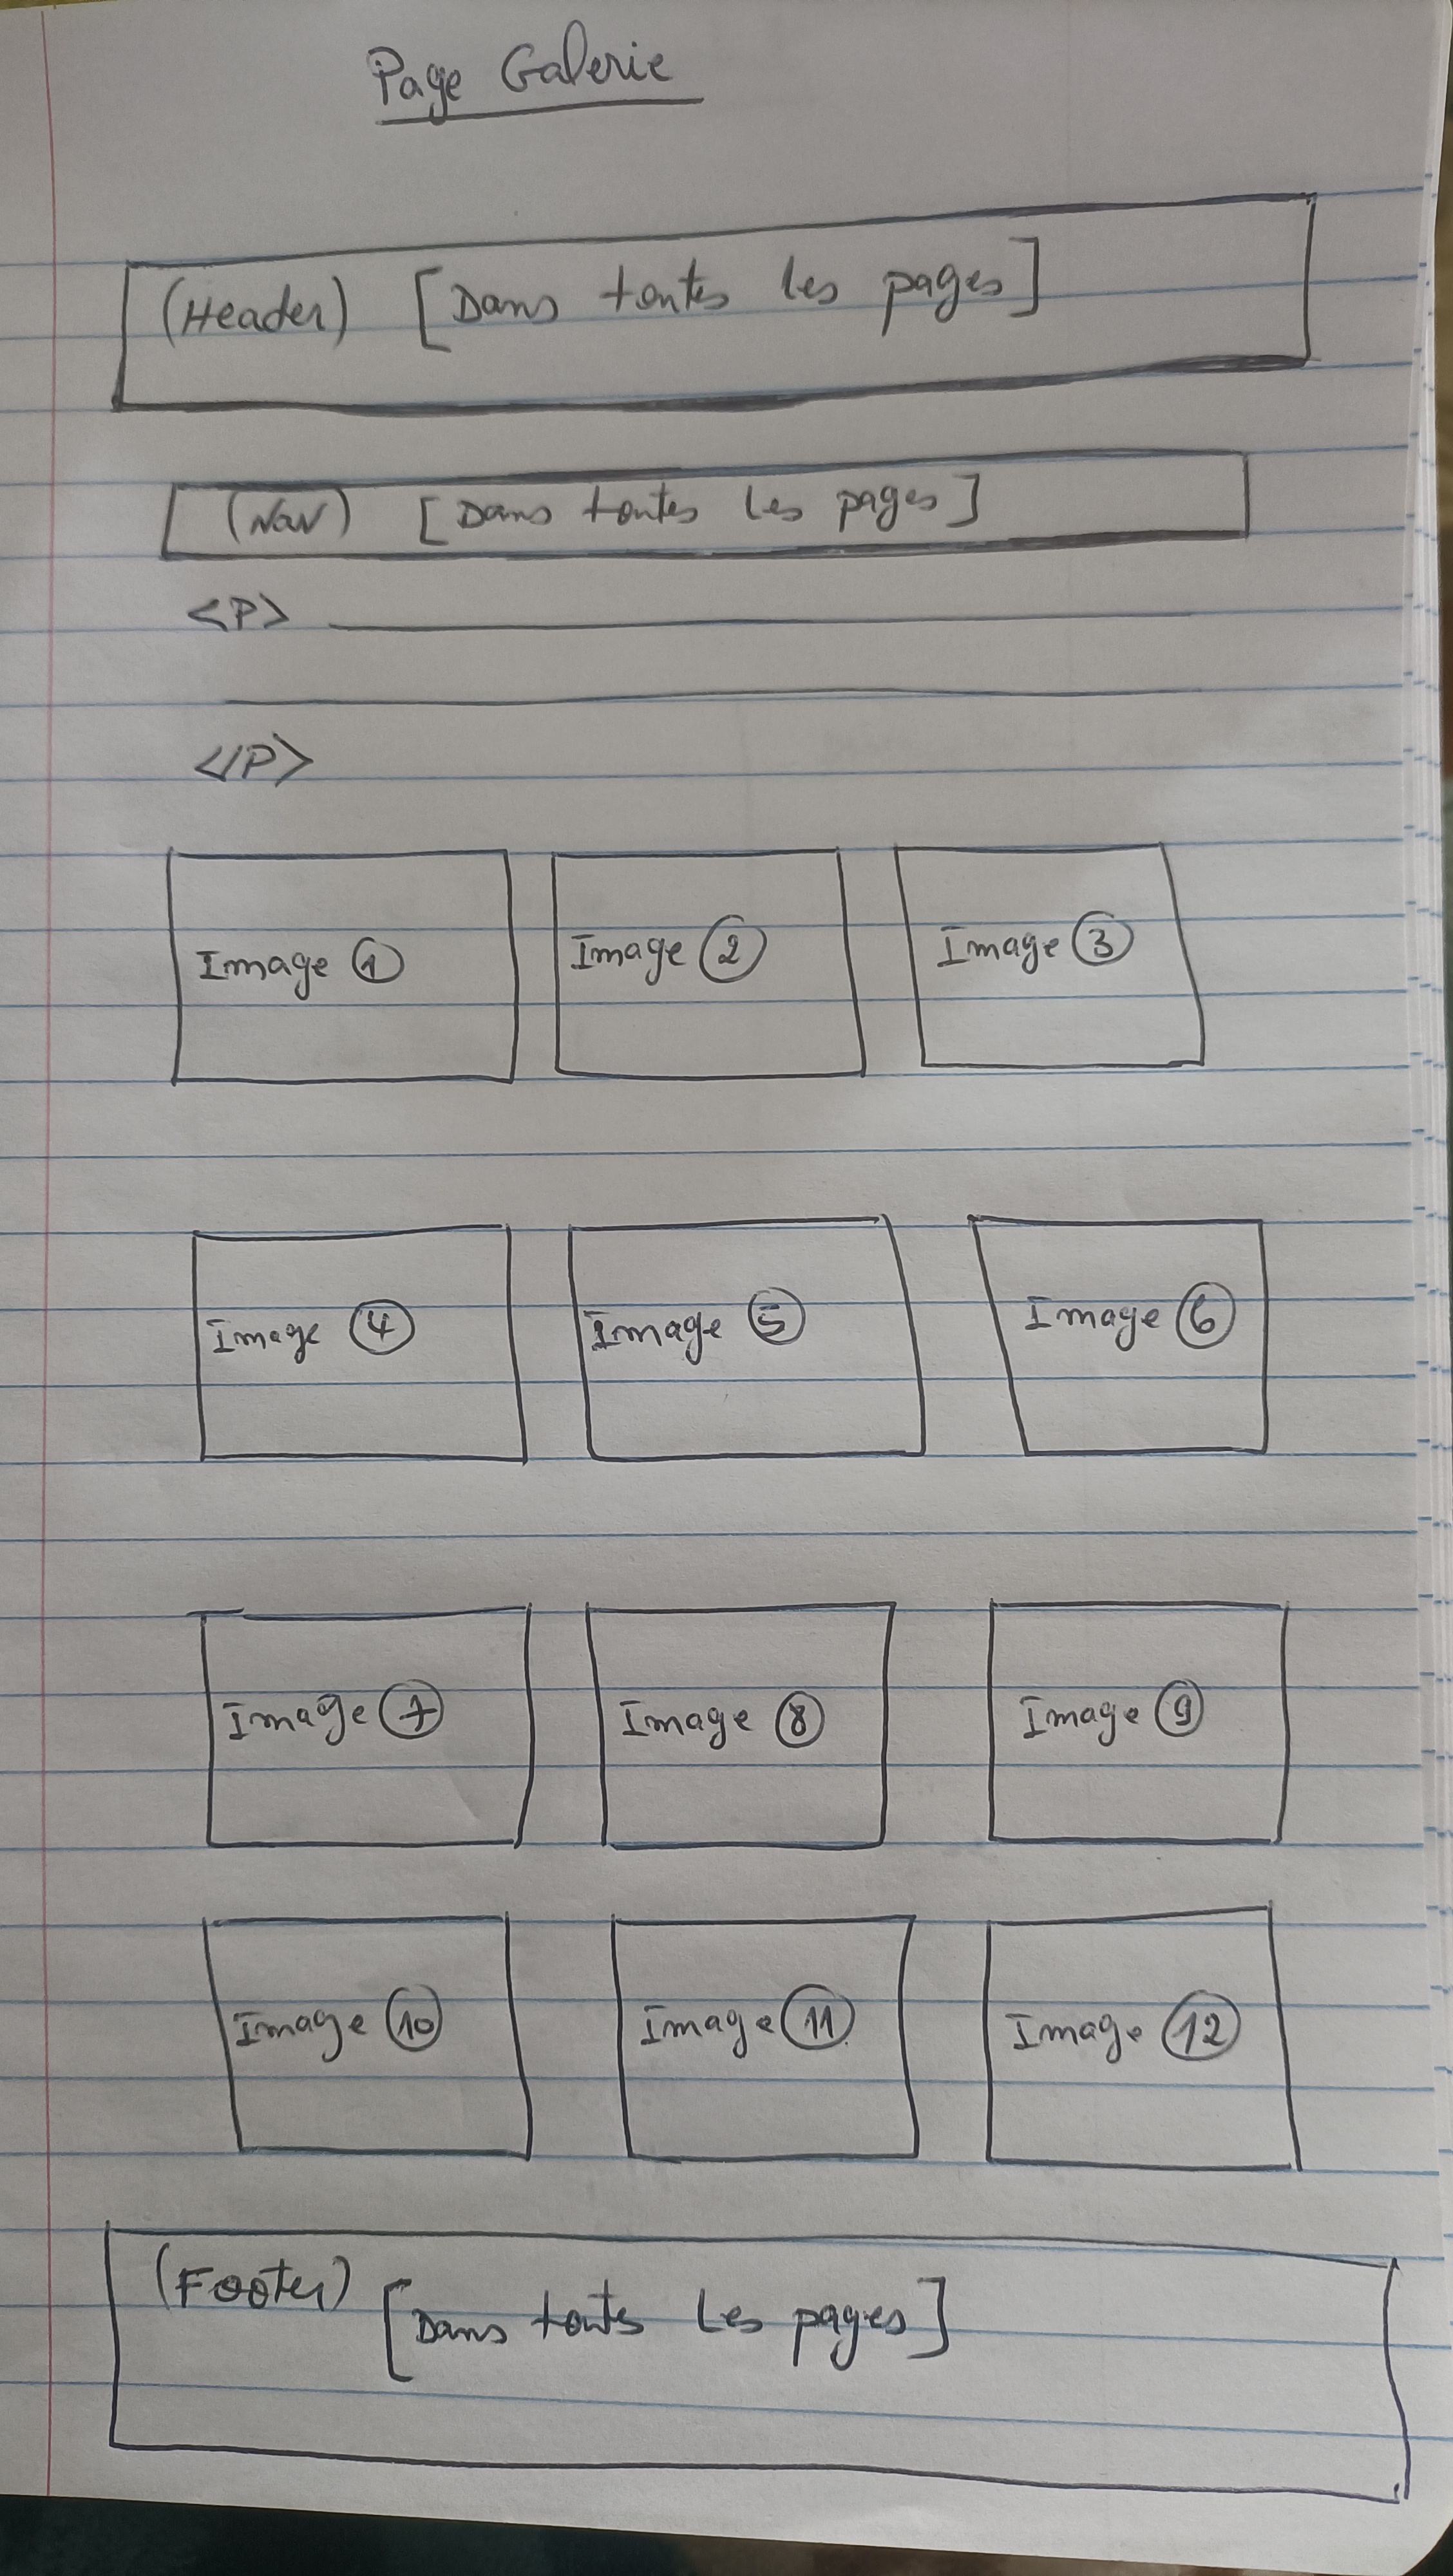 Page Galerie
(Header) [Dans toutes les pages]
(Nav) [Dans toutes les pages]
<P>
</P>
Image 1 Image 2 Image 3
Image 4 Image 5 Image 6
Image 7 Image 8 Image 9
Image 10 Image 11 Image 12
(Footer) [Dans touts les pages]